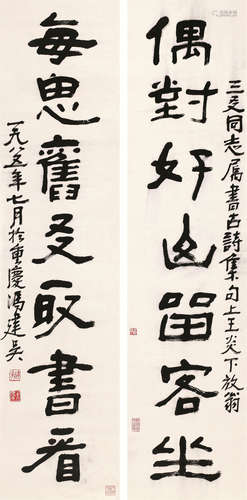 偶對好山留客坐
三文同志属書古詩集句上王炎下放翁
每思舊友取書看
一九八五年七月於重慶馮建吳